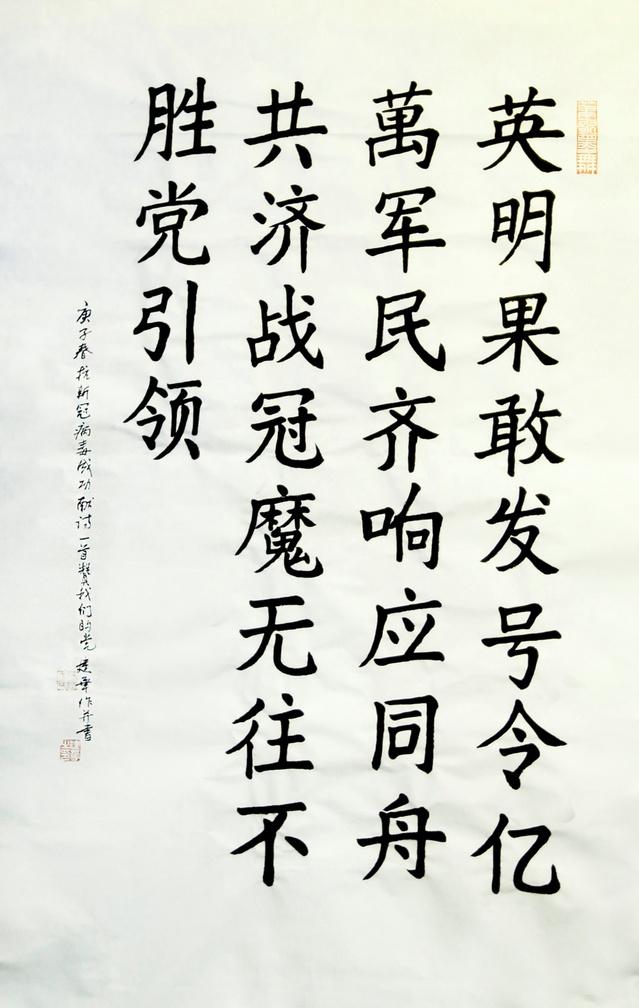 英明果敢发号令亿
萬军民齐响应同舟
共济战冠魔无往不
胜党引领
庚子春抗新冠病毒成功献诗一首赞我们的党 建章作并書